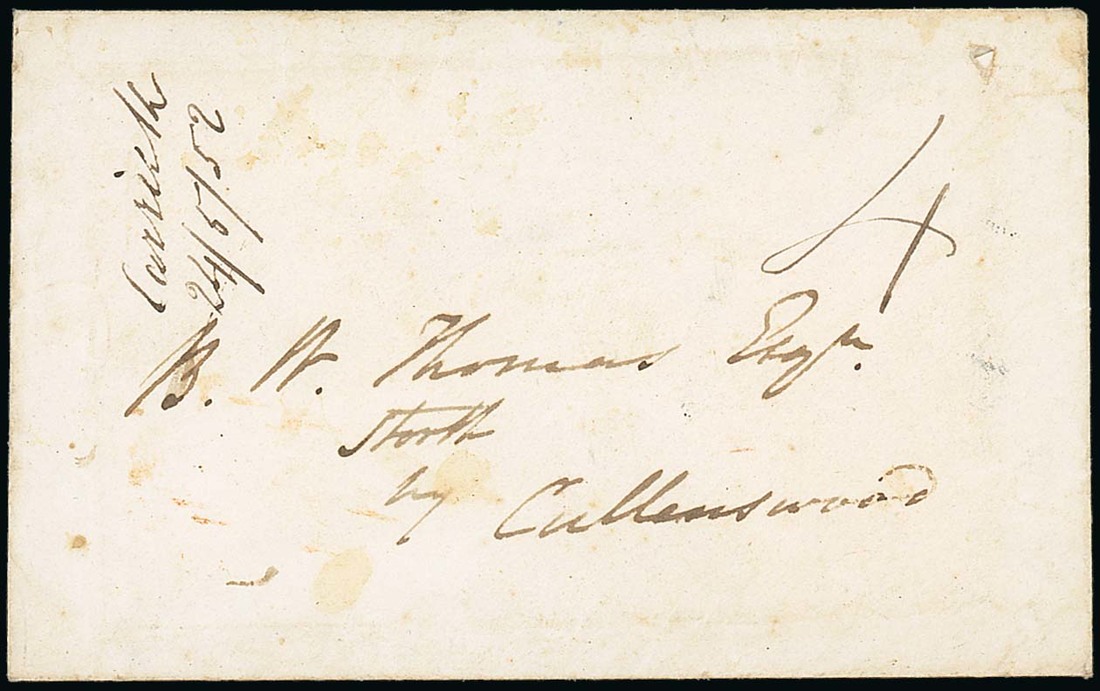 Carrieth
24/5/52
4
B. W. Thomas Esqr.
North
by
Cullenswood